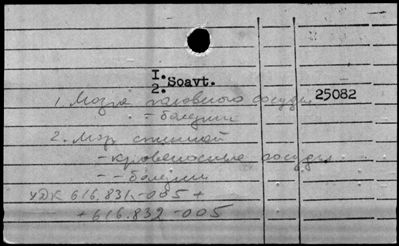 I.
2. Soavt.
1. Мозга головного сосуды 25082
- - болезни
2. Мозг спинной
- кровеносные сосуды
- - болезни
УДК 616.831.-005 +
+ 616.832-005